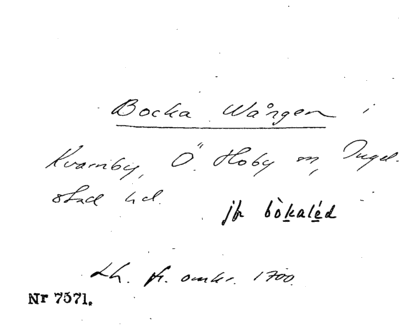 Bocka Wången i
Kvarnby, Ö. Hoby sn, Ingel-
stad hd.
jfr bòkaléd
Lh. fr. omkr. 1700.
Nr 7571.